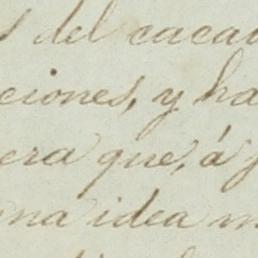 del cacao
ciones, y ha
era que, á
una idea m